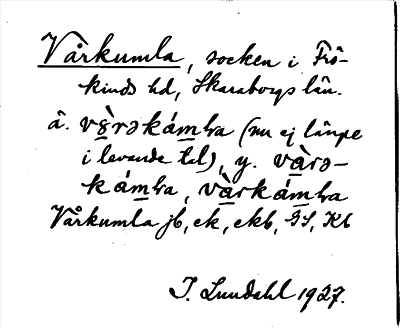 Vårkumla, socken i Frö-
kinds hd, Skaraborgs län.
ä. vs̱̀rəkám̱ḷa (nu ej länge
i levande tal), y. và̱rə-
kám̱ḷa, và̱rkám̱ḷa
Vårkumla jb, ek, ekb, GS, Kb
I. Lundahl 1927.